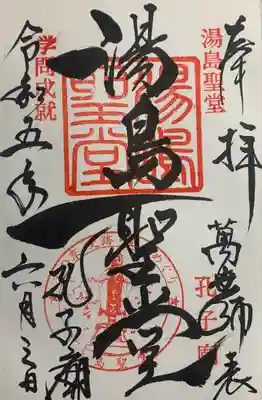 奉拝
湯島聖堂
萬世師表
孔子廟
湯島聖堂
湯島聖堂
孔子廟
学問成就
令和五年六月三日